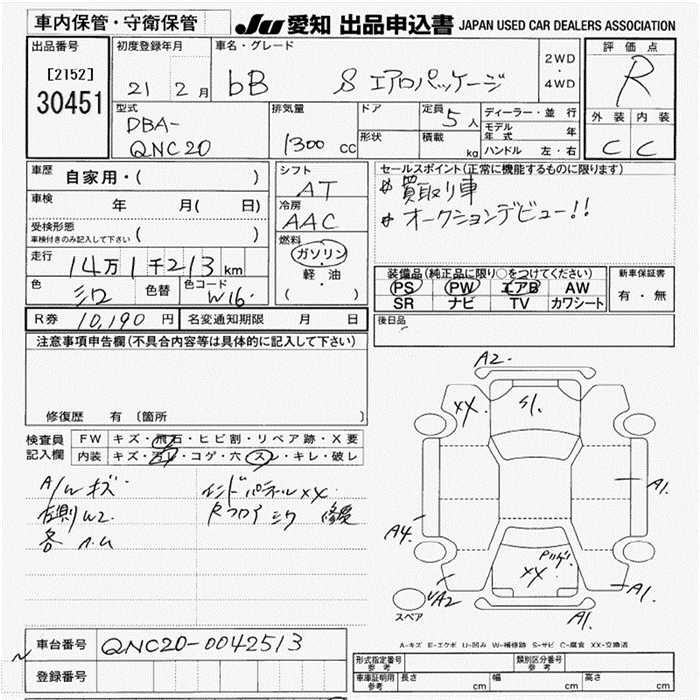 車内保管・守衛保管
JU 愛知 出品申込書 JAPAN USED CAR DEALERS ASSOCIATION
出品番号
[2152]
30451
初度登録年月
21年 2月
車名・グレード
bB S エアロパッケージ
2WD
・
4WD
評価点
R
外装 内装
C C
型式
DBA-
QNC20
排気量
1300 cc
ドア
形状
定員
5人
積載
kg
ディーラー・並行
モデル年式 年
ハンドル 左・右
車歴 自家用・( )
車検 年 月( 日)
受検形態
車検付きのみ記入して下さい ( )
走行 14万1千213km
色 シロ 色替 色コード W16.
R券 10,190円 名変通知期限 月 日
シフト
AT
冷房
AAC
燃料
ガソリン・
軽・油
( )
セールスポイント(正常に機能するものに限ります)
買取り車
オークションデビュー!!
装備品(純正品に限り○をつけてください)
PS PW エアB AW
SR ナビ TV カワシート
新車保証書
有・無
後日品
注意事項申告欄(不具合内容等は具体的に記入して下さい)
修復歴 有〔箇所 〕
検査員記入欄
FW キズ・飛石・ヒビ割・リペア跡・X要
内装 キズ・汚レ・コゲ・穴・スレ・キレ・破レ
A/W キズ
左側 W2
各 A.U
エンドパネル XX
Rフロア シワ 修復
A2
XX
S1.
A1.
A4
XX
UA2
A1.
A1.
スペア
A-キズ E-エクボ U-凹み W-補修跡 S-サビ C-腐食 XX-交換済
車台番号 QNC20-0042513
登録番号
形式指定番号
参考
類別区分番号
参考
車庫証明用
参考
長さ cm 幅 cm 高さ cm